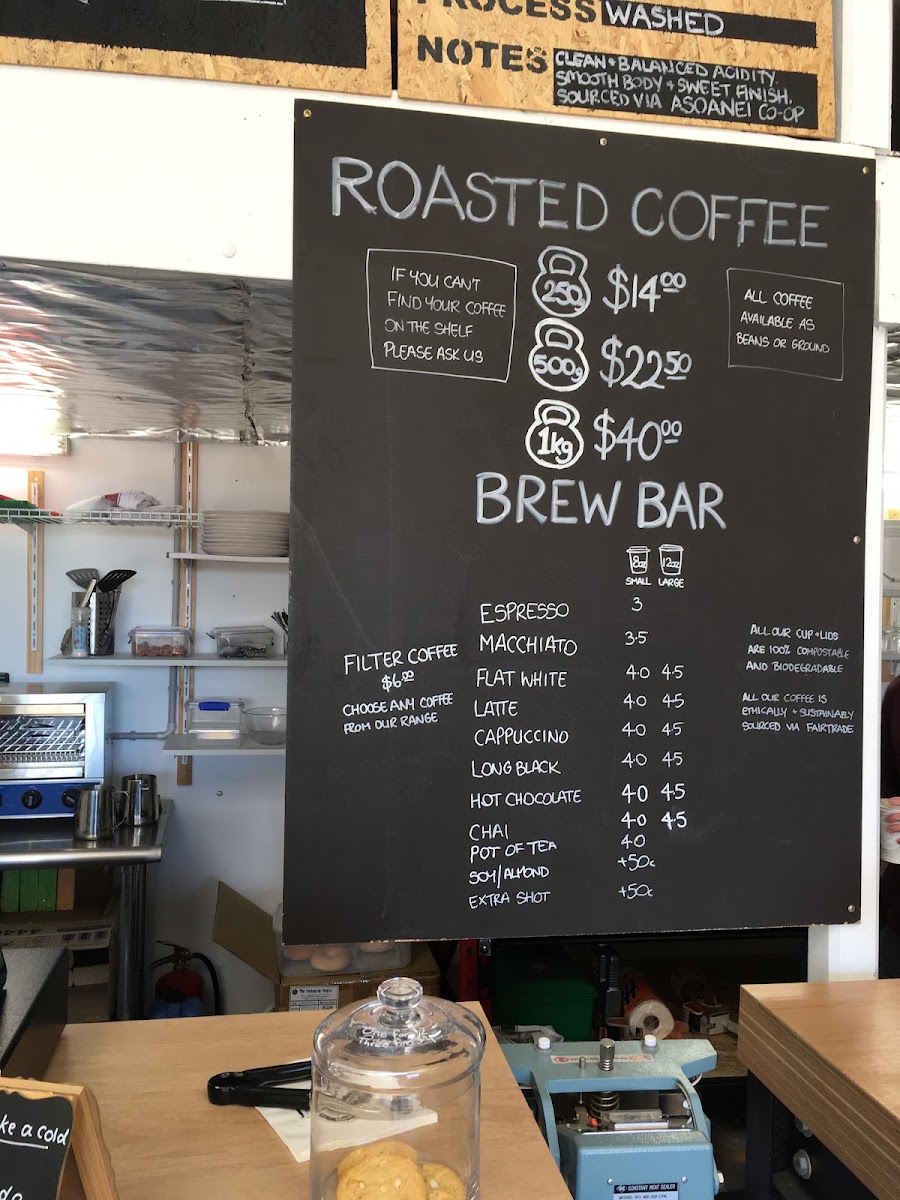 PROCESS WASHED
NOTES CLEAN + BALANCED ACIDITY.
SMOOTH BODY + SWEET FINISH.
SOURCED VIA ASOANEI CO-OP
ROASTED COFFEE
IF YOU CAN'T
FIND YOUR COFFEE
ON THE SHELF
PLEASE ASK US
250g $14.00
500g $22.50
1kg $40.00
ALL COFFEE
AVAILABLE AS
BEANS OR GROUND
BREW BAR
8oz 12oz
SMALL LARGE
ESPRESSO 3
MACCHIATO 3.5
FLAT WHITE 4.0 4.5
LATTE 4.0 4.5
CAPPUCCINO 4.0 4.5
LONG BLACK 4.0 4.5
HOT CHOCOLATE 4.0 4.5
CHAI 4.0 4.5
POT OF TEA 4.0
SOY/ALMOND +50c
EXTRA SHOT +50c
FILTER COFFEE
$6.00
CHOOSE ANY COFFEE
FROM OUR RANGE
ALL OUR CUP + LIDS
ARE 100% COMPOSTABLE
AND BIODEGRADABLE
ALL OUR COFFEE IS
ETHICALLY + SUSTAINABLY
SOURCED VIA FAIRTRADE
One for
Three for
ke a cold
CONSTANT HEAT SEALER